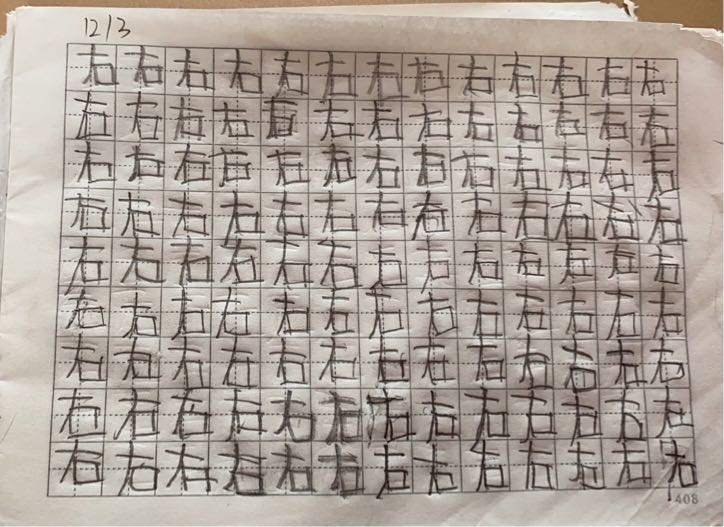 12/3
右右右右右右右右右右右右右
右右右右右右右右右右右右右
右右右右右右右右右右右右右
右右右右右右右右右右右右右
右右右右右右右右右右右右右
右右右右右右右右右右右右右
右右右右右右右右右右右右右
右右右右右右右右右右右右右
右右右右右右右右右右右右右
408